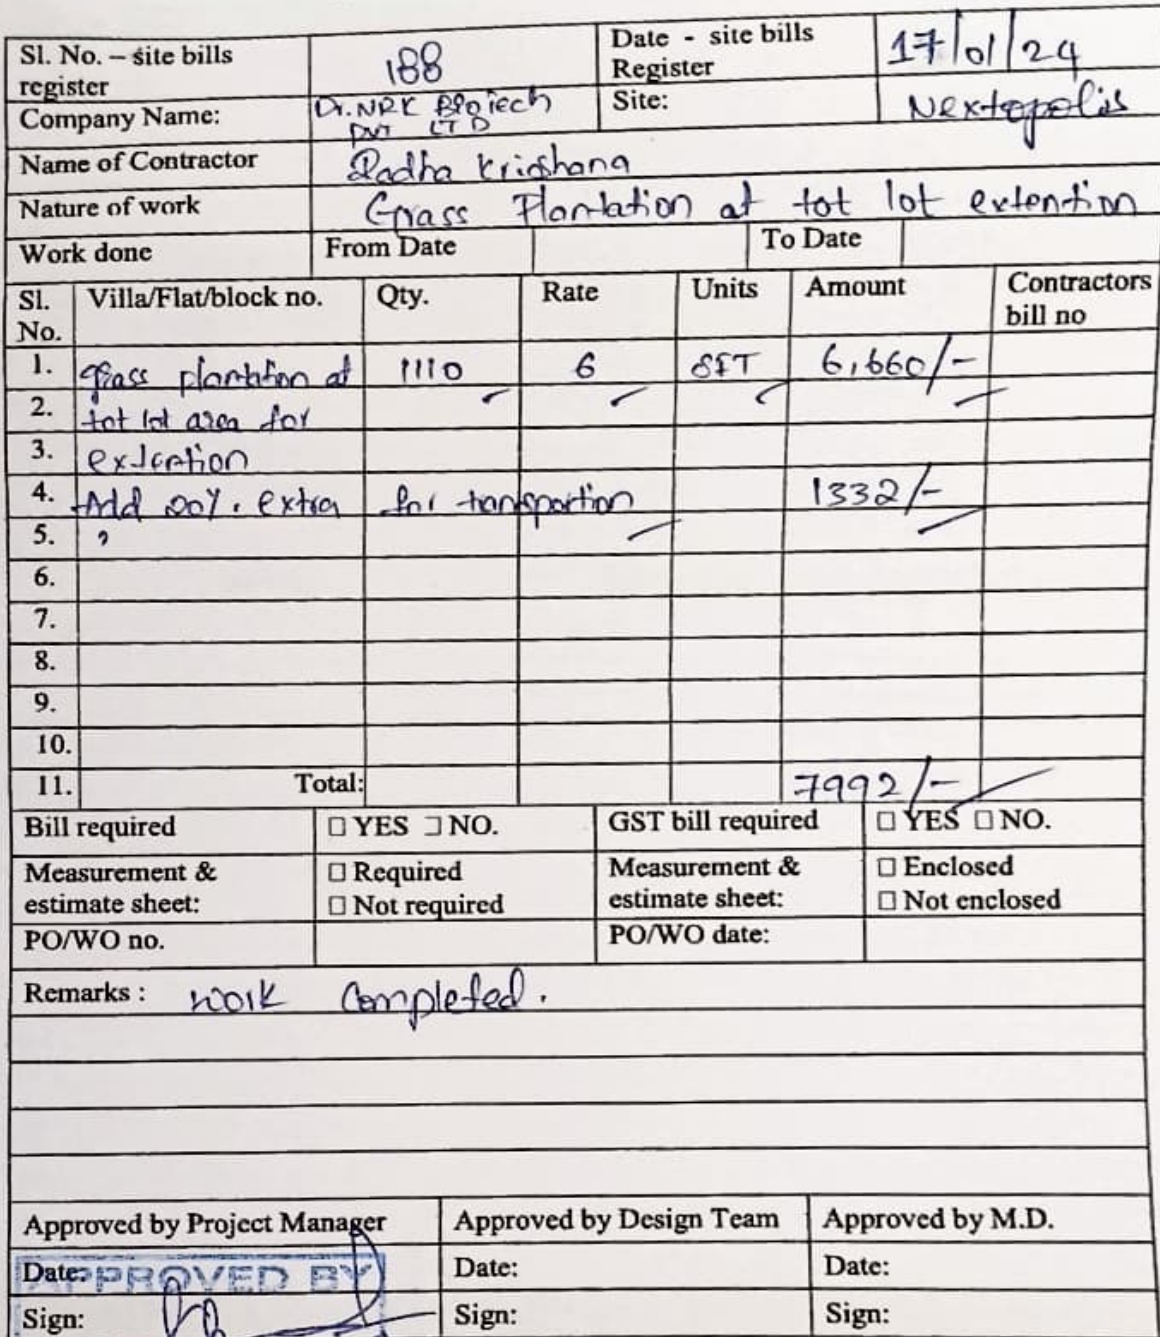 Sl. No. – site bills register 188 Date - site bills Register 17/01/24
Company Name: Dr. NRK Biotech PVT LTD Site: Nextopolis
Name of Contractor Radha Krishana
Nature of work Grass Plantation at tot lot extention
Work done From Date To Date
Sl. No. Villa/Flat/block no. Qty. Rate Units Amount Contractors bill no
1. grass plantation at 1110 6 SFT 6,660/-
2. tot lot area for
3. extention
4. Add 20%. extra for transportion 1332/-
5.
6.
7.
8.
9.
10.
11. Total: 7992/-
Bill required □ YES □ NO. GST bill required □ YES □ NO.
Measurement & estimate sheet: □ Required □ Not required Measurement & estimate sheet: □ Enclosed □ Not enclosed
PO/WO no. PO/WO date:
Remarks : work Completed.
Approved by Project Manager Approved by Design Team Approved by M.D.
Date: APPROVED BY Date: Date:
Sign: Sign: Sign: